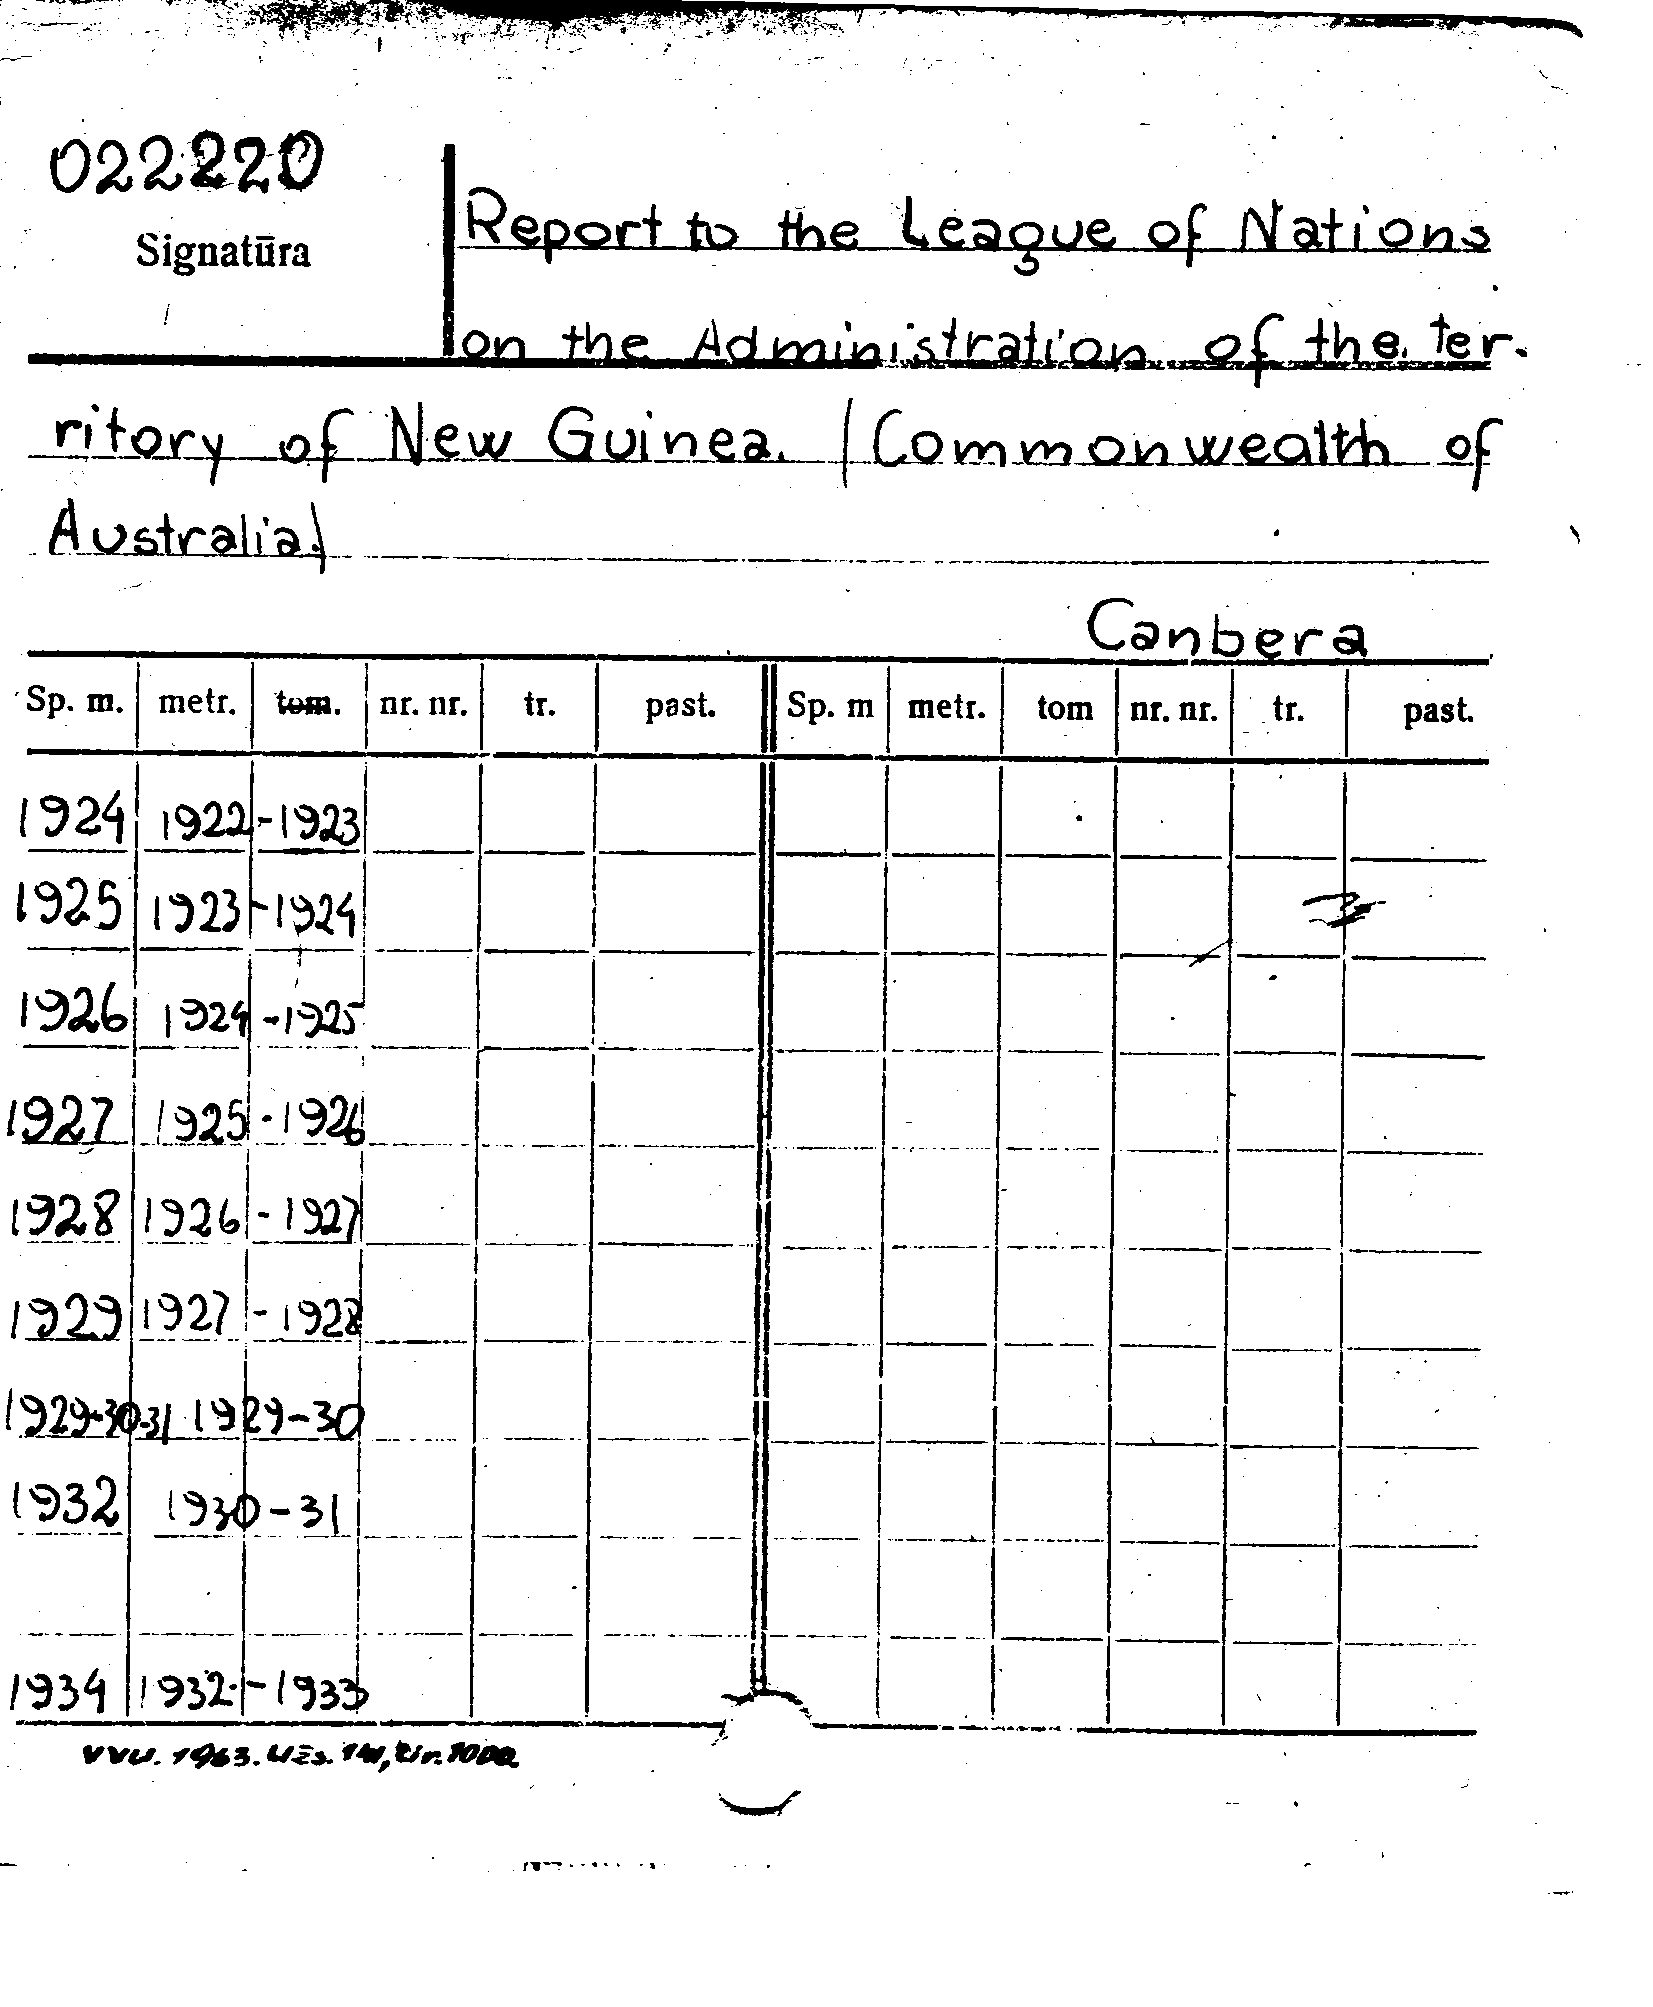 022220
Signatūra
Report to the League of Nations
on the Administration of the ter.
ritory of New Guinea. (Commonwealth of
Australia)
Canbera
Sp. m. metr. tom. nr. nr. tr. past. Sp. m metr. tom nr. nr. tr. past.
1924 1922-1923
1925 1923-1924
1926 1924-1925
1927 1925-1926
1928 1926-1927
1929 1927-1928
1929-30-31 1929-30
1932 1930-31
1934 1932-1933
VVU. 1963. Užs. 141, tir. 1000